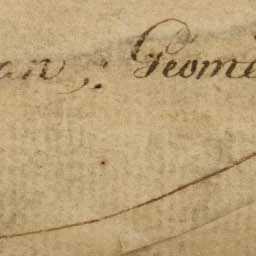 an,: Geome